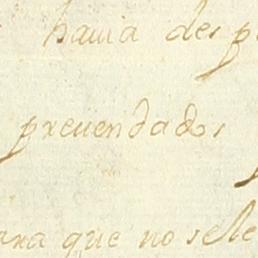 hauia des p
preuendados
ara que no sele